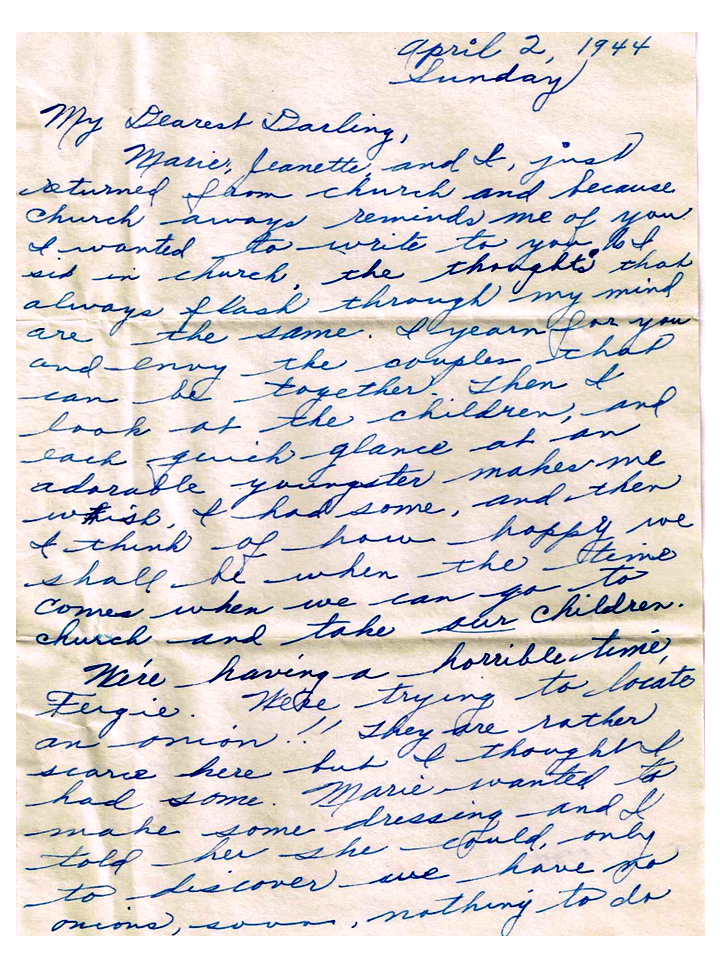 April 2, 1944
Sunday
My Dearest Darling,
Marie, Jeanette, and I, just
returned from church and because
church aways reminds me of you
I wanted to write to you. As I
sit in church, the thoughts that
always flash through my mind
are the same. I yearn for you
and envy the couples that
can be together. Then I
look at the children, and
each quick glance at an
adorable youngster makes me
wish, I had some, and then
I think of how happy we
shall be when the time
comes when we can go to
church and take our children.
We're having a horrible time,
Fergie. We're trying to locate
an onion!! They are rather
scarce here but I thought I
had some. Marie wanted to
make some dressing and I
told her she could, only
to discover we have no
onions, sooo, nothing to do